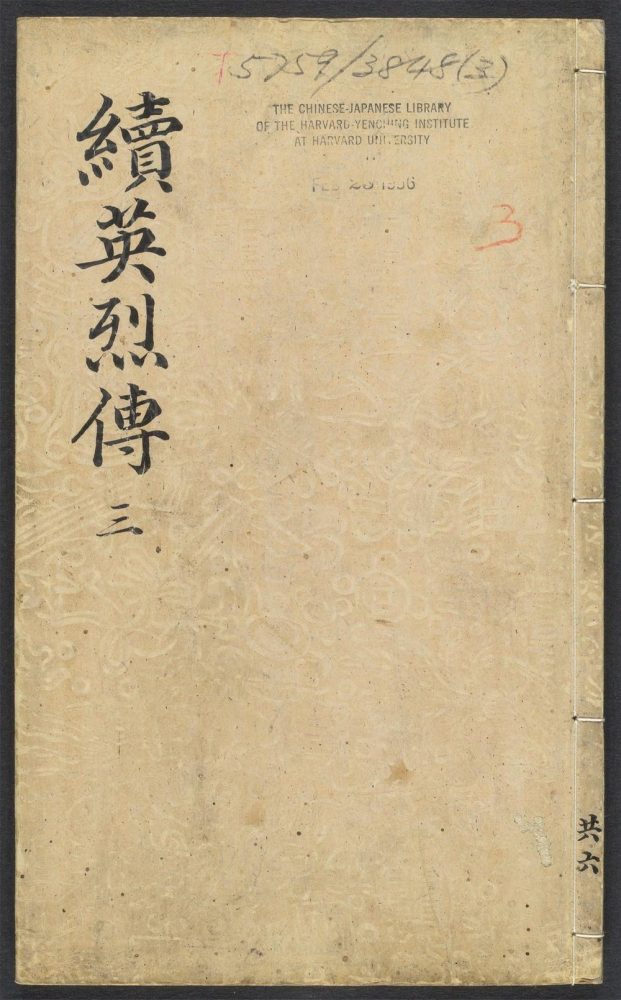 T5759/3848(3)
THE CHINESE-JAPANESE LIBRARY
OF THE HARVARD-YENCHING INSTITUTE
AT HARVARD UNIVERSITY
3
續英烈傳 三
共六